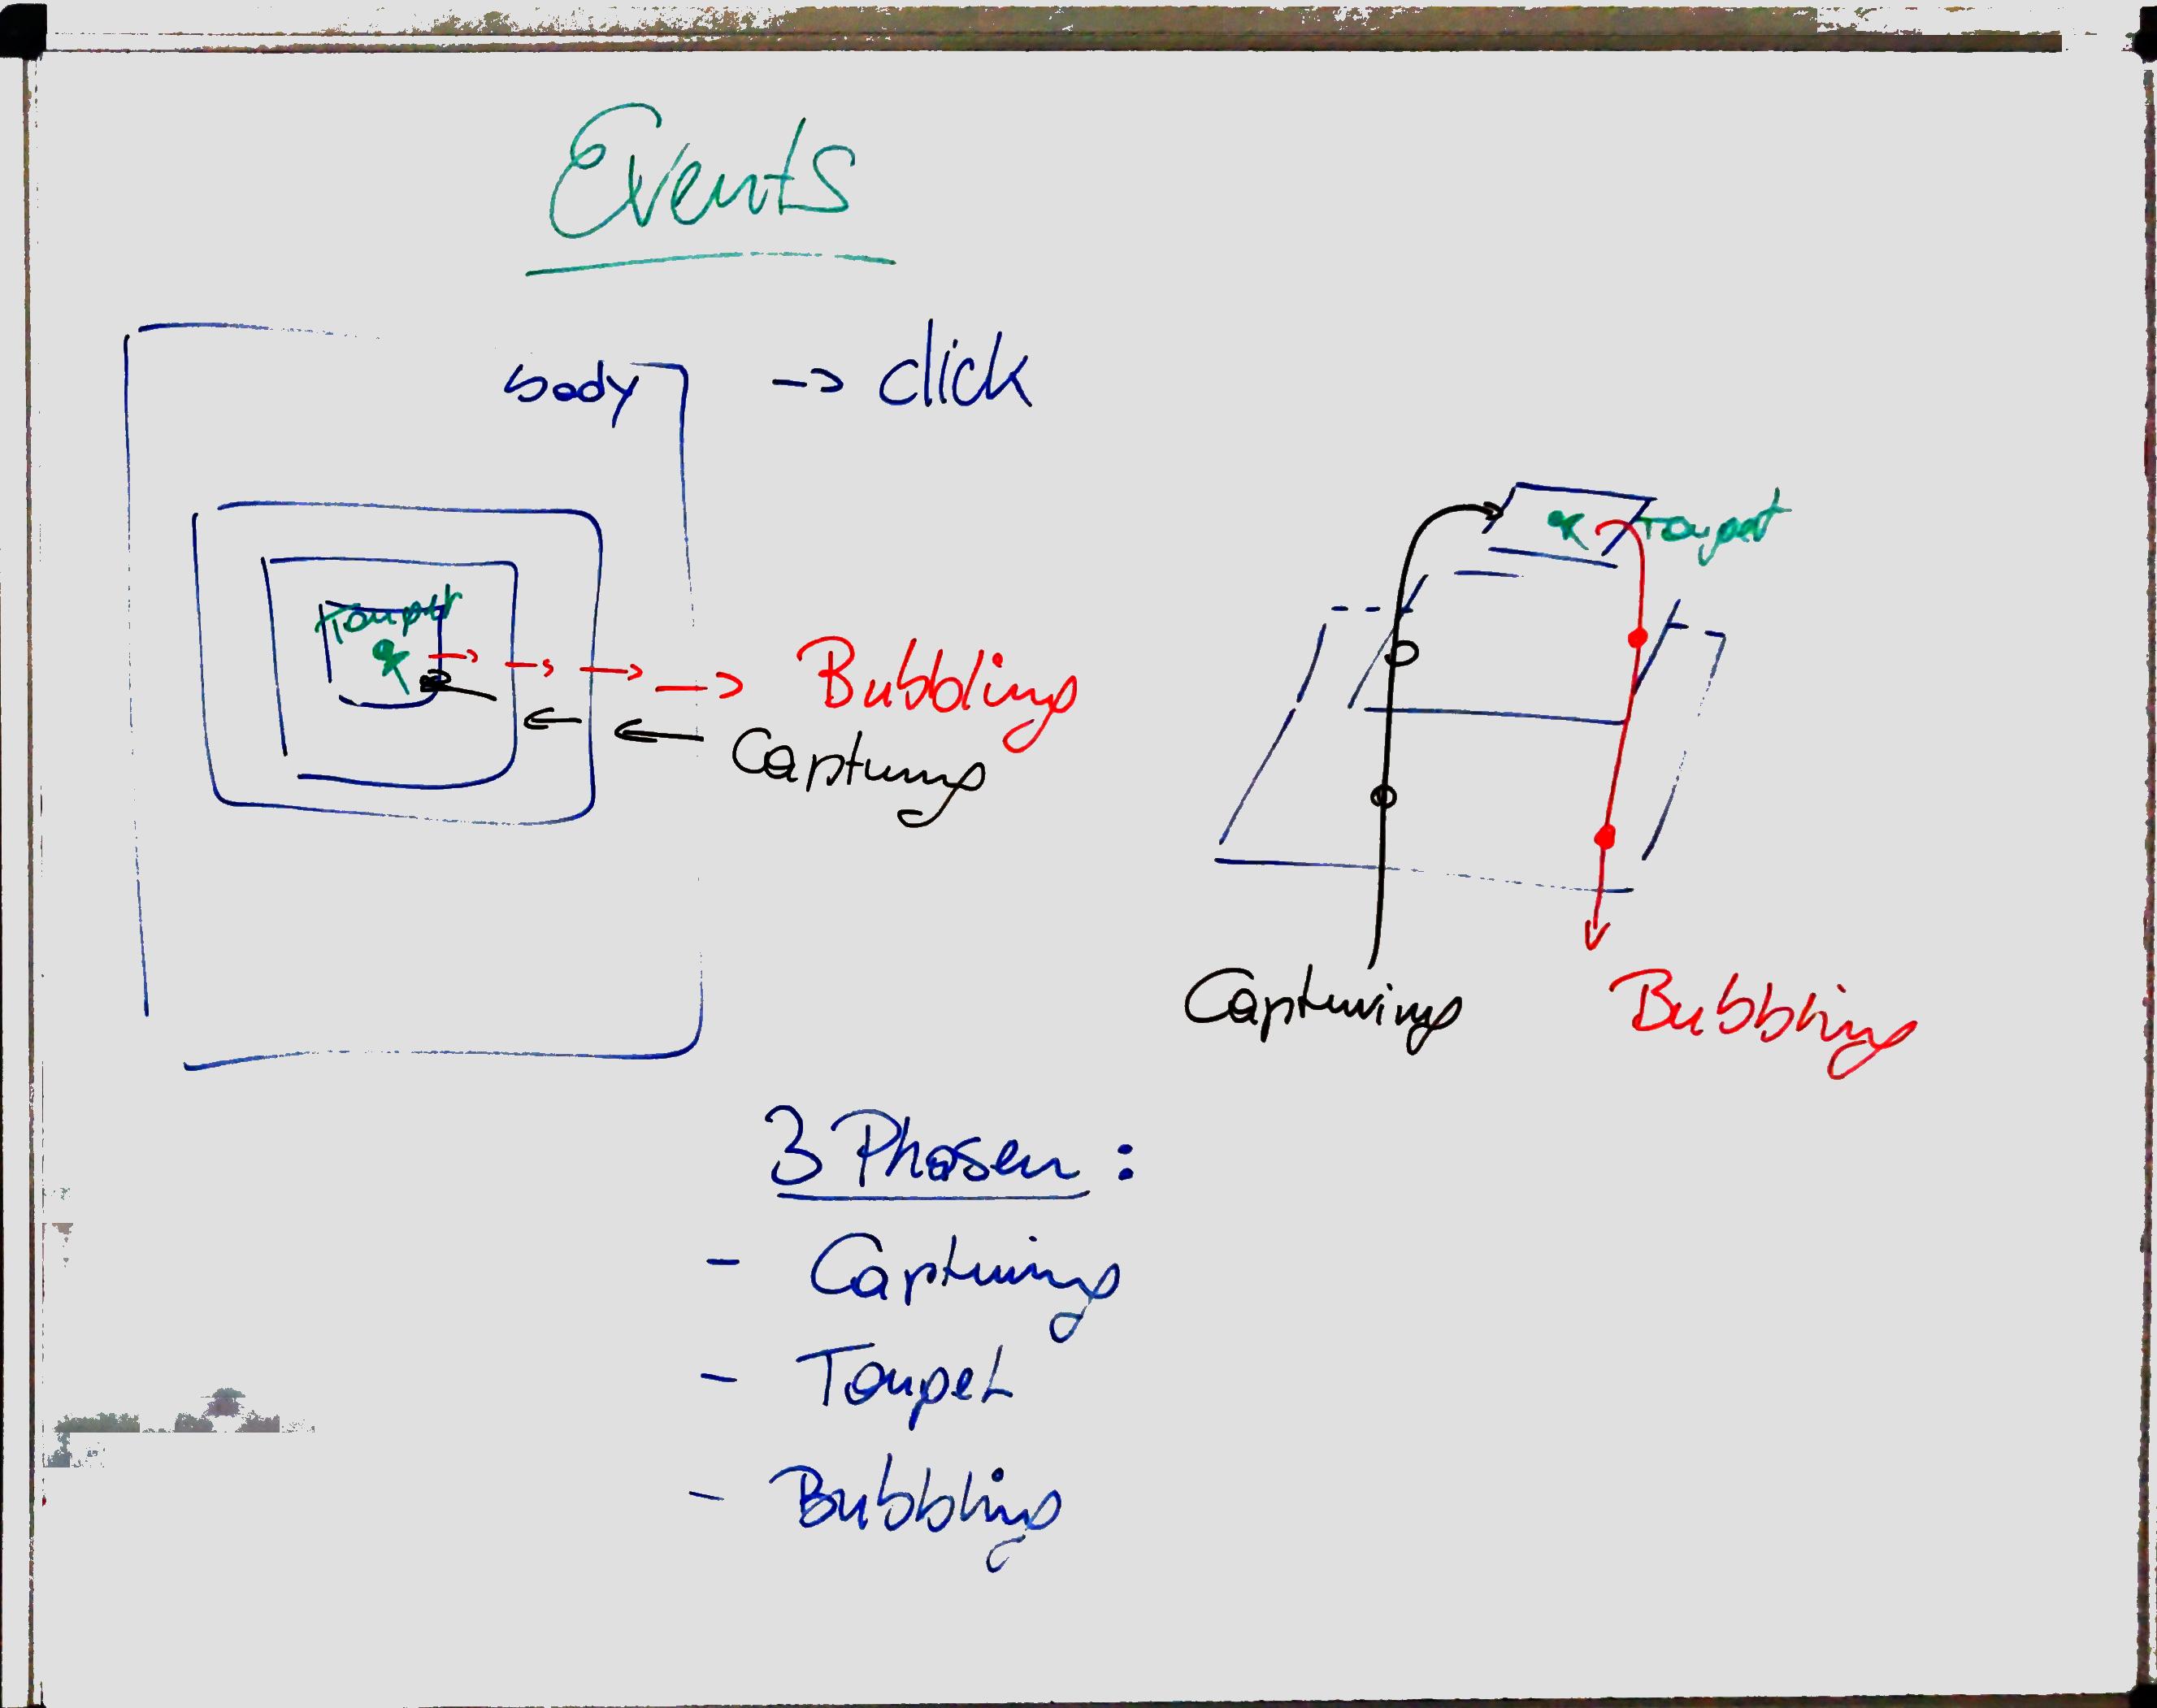 Events
body
-> click
Target
Bubbling
Capturing
Target
Capturing
Bubbling
3 Phasen:
- Capturing
- Target
- Bubbling